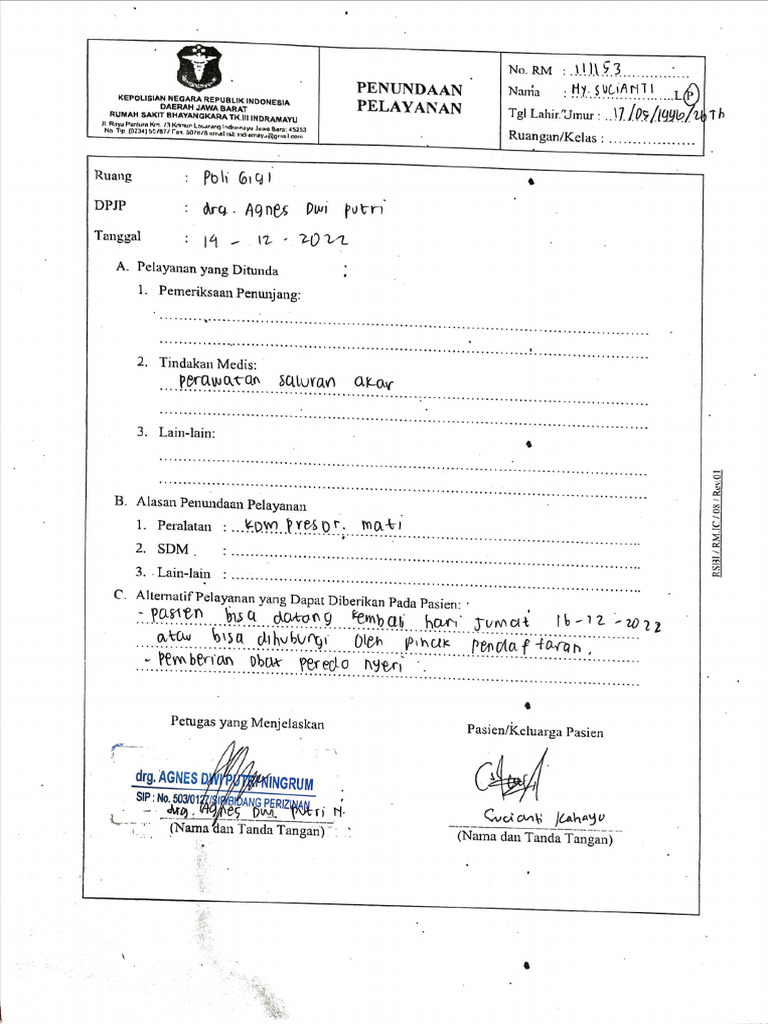 KEPOLISIAN NEGARA REPUBLIK INDONESIA
DAERAH JAWA BARAT
RUMAH SAKIT BHAYANGKARA TK.III INDRAMAYU
Jl. Raya Pantura Km. 73 Losarang Indramayu Jawa Barat 45253
PENUNDAAN
PELAYANAN
No. RM : 111153
Nama : NY. SUCIANTI L/P
Tgl Lahir/Umur : 17/05/1996/26 Th
Ruangan/Kelas :
Ruang : Poli Gigi
DPJP : drg. Agnes Dwi Putri
Tanggal : 14 - 12 - 2022
A. Pelayanan yang Ditunda :
1. Pemeriksaan Penunjang:
2. Tindakan Medis:
perawatan saluran akar
3. Lain-lain:
B. Alasan Penundaan Pelayanan
1. Peralatan : kompresor mati
2. SDM :
3. Lain-lain :
C. Alternatif Pelayanan yang Dapat Diberikan Pada Pasien:
- pasien bisa datang kembali hari Jumat 16-12-2022
atau bisa dihubungi oleh pihak pendaftaran.
- pemberian obat pereda nyeri.
Petugas yang Menjelaskan
Pasien/Keluarga Pasien
drg. AGNES DWI PUTRI NINGRUM
SIP : No. 503/0127/SIP/BIDANG PERIZINAN
drg. Agnes Dwi Putri N.
Sucianti
(Nama dan Tanda Tangan)
(Nama dan Tanda Tangan)
RSBI / RM.IC / 08 / Rev.01